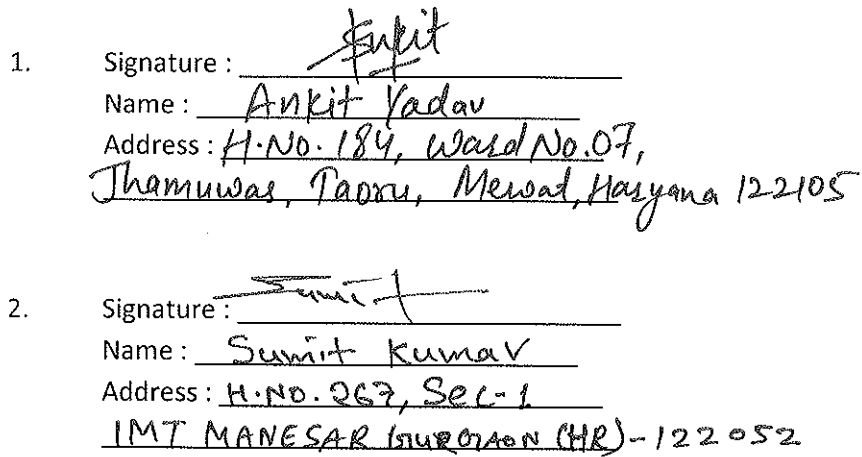 1. Signature : Ankit
Name : Ankit Yadav
Address : H.No. 184, Ward No.07,
Jhamuwas, Taoru, Mewat, Haryana 122105
2. Signature : Sumit
Name : Sumit Kumar
Address : H.NO. 267, Sec-1
IMT MANESAR GURGAON (HR)-122052